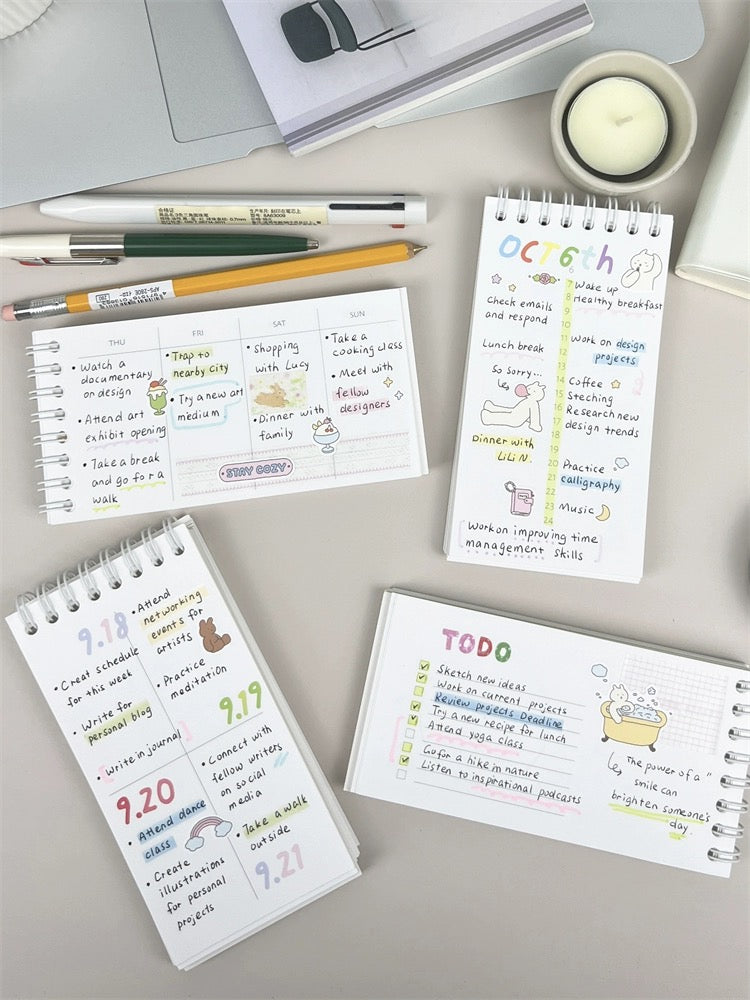 合格证
THU
FRI
SAT
SUN
• Watch a
documentary
on design
• Attend art
exhibit opening
• Take a break
and go for a
walk
• Trap to
nearby city
• Try a new art
medium.
• Shopping
with Lucy
• Dinner with
family
• Take a
cooking class
• Meet with
fellow
designers
STAY COZY
OCT 6th
7
8
9
10
11
12
13
14
15
16
17
18
19
20
21
22
23
24
Wake up
Healthy breakfast
Check emails
and respond
Lunch break
Work on design
projects
So sorry...
Coffee
Steching
Research new
design trends
Dinner with
LiLi N.
Practice
calligraphy
Music
Work on improving time
management skills
9.18
• Creat schedule
for this week
• Write for
personal blog
• Write in journal
• Attend
networking
events for
artists
• Practice
meditation
9.19
9.20
• Attend dance
class
• Create
illustrations
for personal
projects
• Connect with
fellow writers
on social
media
• Take a walk
outside
9.21
TODO
Sketch new ideas
Work on current projects
Review projects Deadline
Try a new recipe for lunch
Attend yoga class
Go for a hike in nature
Listen to inspirational podcasts
The power of a "
smile can
brighten someone's
day.